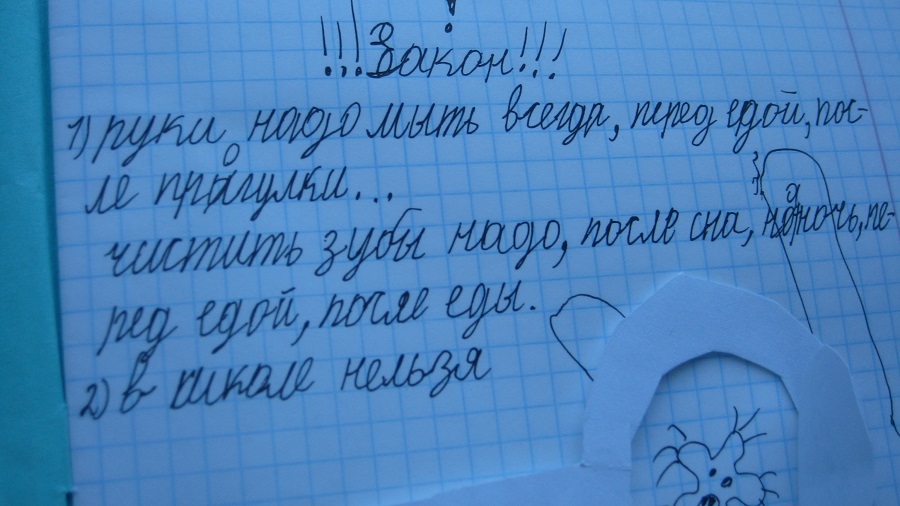 !!!Закон!!!
1) руки надо мыть всегда, перед едой, пос-
ле прогулки...
чистить зубы надо, после сна, на ночь, пе-
ред едой, после еды.
2) в школе нельзя